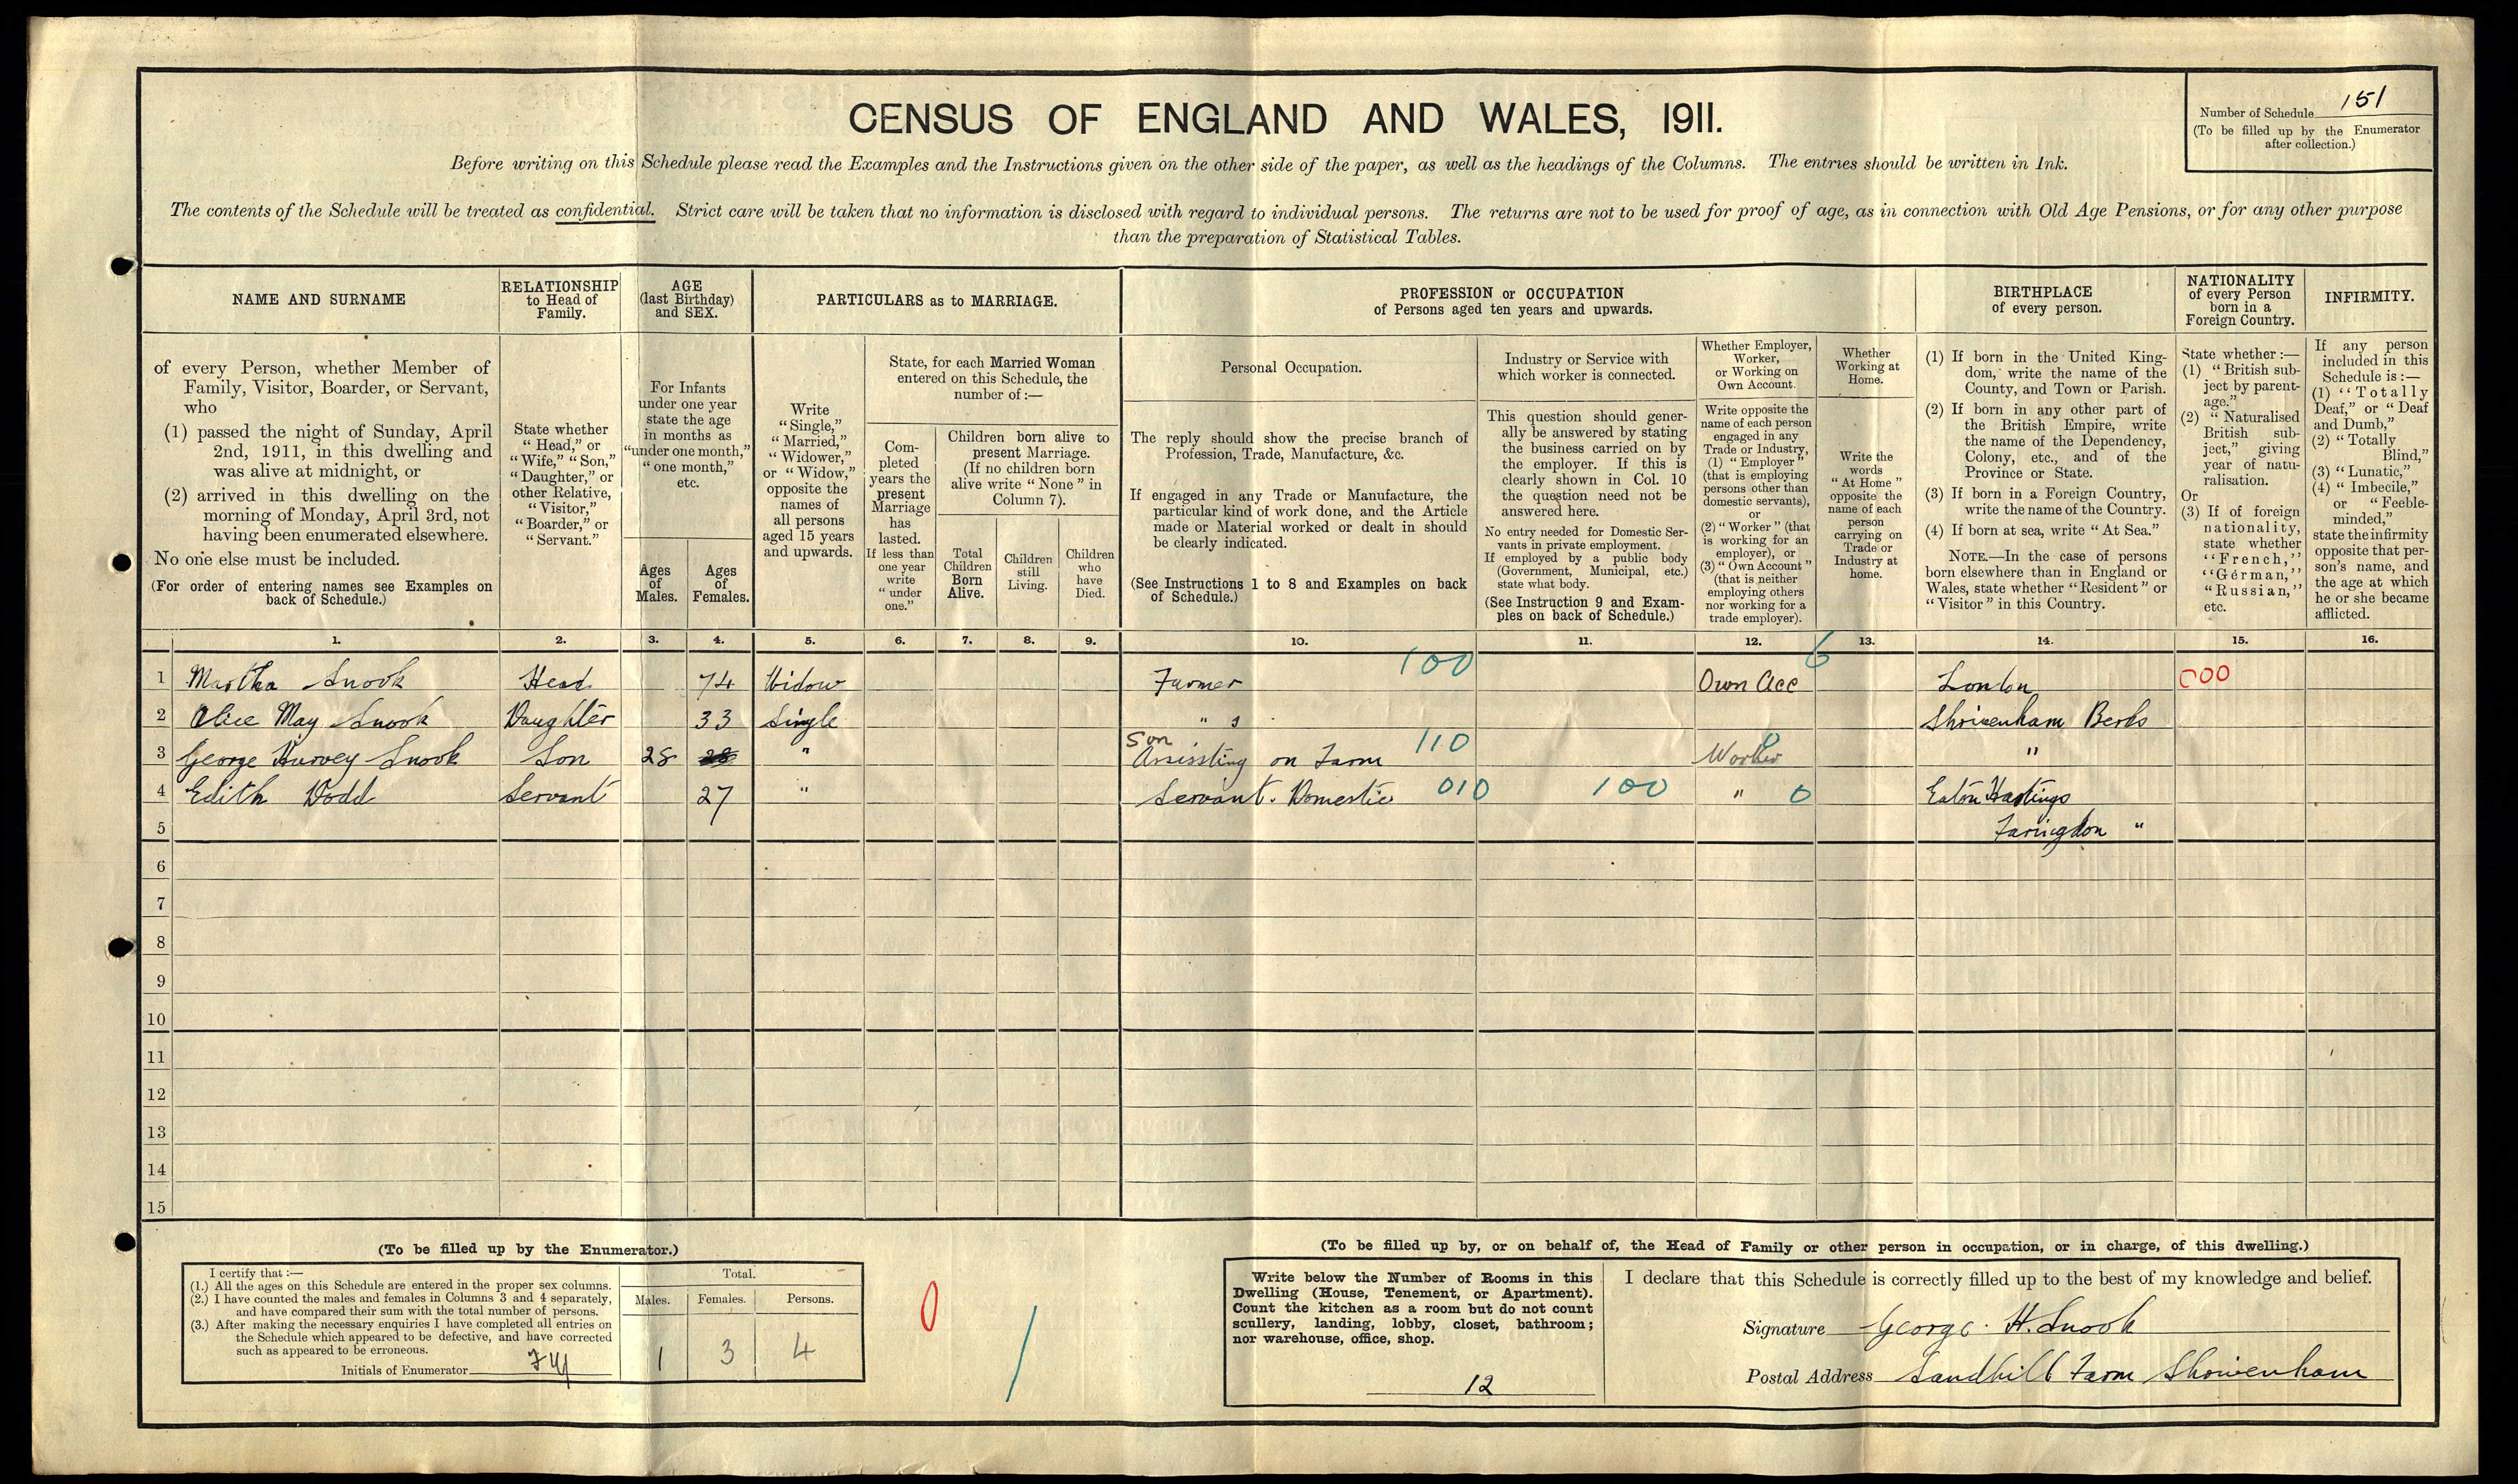 CENSUS OF ENGLAND AND WALES, 1911.
Number of Schedule 151
(To be filled up by the Enumerator
after collection.)
Before writing on this Schedule please read the Examples and the Instructions given on the other side of the paper, as well as the headings of the Columns. The entries should be written in Ink.
The contents of the Schedule will be treated as confidential. Strict care will be taken that no information is disclosed with regard to individual persons. The returns are not to be used for proof of age, as in connection with Old Age Pensions, or for any other purpose
than the preparation of Statistical Tables.
NAME AND SURNAME
of every Person, whether Member of
Family, Visitor, Boarder, or Servant,
who
(1) passed the night of Sunday, April
2nd, 1911, in this dwelling and
was alive at midnight, or
(2) arrived in this dwelling on the
morning of Monday, April 3rd, not
having been enumerated elsewhere.
No one else must be included.
(For order of entering names see Examples on
back of Schedule.)
RELATIONSHIP
to Head of
Family.
State whether
"Head," or
"Wife," "Son,"
"Daughter," or
other Relative,
"Visitor,"
"Boarder," or
"Servant."
AGE
(last Birthday)
and SEX.
For Infants
under one year
state the age
in months as
"under one month,"
"one month,"
etc.
Ages
of
Males.
Ages
of
Females.
PARTICULARS as to MARRIAGE.
Write
"Single,"
"Married,"
"Widower,"
or "Widow,"
opposite the
names of
all persons
aged 15 years
and upwards.
State, for each Married Woman
entered on this Schedule, the
number of :—
Com-
pleted
years the
present
Marriage
has
lasted.
If less than
one year
write
"under
one."
Children born alive to
present Marriage.
(If no children born
alive write "None" in
Column 7).
Total
Children
Born
Alive.
Children
still
Living.
Children
who
have
Died.
PROFESSION or OCCUPATION
of Persons aged ten years and upwards.
Personal Occupation.
The reply should show the precise branch of
Profession, Trade, Manufacture, &c.
If engaged in any Trade or Manufacture, the
particular kind of work done, and the Article
made or Material worked or dealt in should
be clearly indicated.
(See Instructions 1 to 8 and Examples on back
of Schedule.)
Industry or Service with
which worker is connected.
This question should gener-
ally be answered by stating
the business carried on by
the employer. If this is
clearly shown in Col. 10
the question need not be
answered here.
No entry needed for Domestic Ser-
vants in private employment.
If employed by a public body
(Government, Municipal, etc.)
state what body.
(See Instruction 9 and Exam-
ples on back of Schedule.)
Whether Employer,
Worker,
or Working on
Own Account.
Write opposite the
name of each person
engaged in any
Trade or Industry,
(1) "Employer"
(that is employing
persons other than
domestic servants),
or
(2) "Worker" (that
is working for an
employer), or
(3) "Own Account"
(that is neither
employing others
nor working for a
trade employer).
Whether
Working at
Home.
Write the
words
"At Home"
opposite the
name of each
person
carrying on
Trade or
Industry at
home.
BIRTHPLACE
of every person.
(1) If born in the United King-
dom, write the name of the
County, and Town or Parish.
(2) If born in any other part of
the British Empire, write
the name of the Dependency,
Colony, etc., and of the
Province or State.
(3) If born in a Foreign Country,
write the name of the Country.
(4) If born at sea, write "At Sea."
NOTE.—In the case of persons
born elsewhere than in England or
Wales, state whether "Resident" or
"Visitor" in this Country.
NATIONALITY
of every Person
born in a
Foreign Country.
State whether :—
(1) "British sub-
ject by parent-
age."
(2) "Naturalised
British sub-
ject," giving
year of natu-
ralisation.
Or
(3) If of foreign
nationality,
state whether
"French,"
"German,"
"Russian,"
etc.
INFIRMITY.
If any person
included in this
Schedule is :—
(1) "Totally
Deaf," or "Deaf
and Dumb,"
(2) "Totally
Blind,"
(3) "Lunatic,"
(4) "Imbecile,"
or "Feeble-
minded,"
state the infirmity
opposite that per-
son's name, and
the age at which
he or she became
afflicted.
1. 2. 3. 4. 5. 6. 7. 8. 9. 10. 11. 12. 13. 14. 15. 16.
1 Martha Snook Head 74 Widow Farmer 100 Own Acc 6 London 000
2 Alice May Snook Daughter 33 Single " s Shrivenham Berks
3 George Harvey Snook Son 28 28 " Son Assissting on Farm 110 Worker 0 "
4 Edith Dodd Servant 27 " Servant. Domestic 010 100 " 0 Eaton Hastings
5 Faringdon "
6
7
8
9
10
11
12
13
14
15
(To be filled up by the Enumerator.)
I certify that :—
(1.) All the ages on this Schedule are entered in the proper sex columns.
(2.) I have counted the males and females in Columns 3 and 4 separately,
and have compared their sum with the total number of persons.
(3.) After making the necessary enquiries I have completed all entries on
the Schedule which appeared to be defective, and have corrected
such as appeared to be erroneous.
Initials of Enumerator
Total.
Males. Females. Persons.
1 3 4
0 /
(To be filled up by, or on behalf of, the Head of Family or other person in occupation, or in charge, of this dwelling.)
Write below the Number of Rooms in this
Dwelling (House, Tenement, or Apartment).
Count the kitchen as a room but do not count
scullery, landing, lobby, closet, bathroom;
nor warehouse, office, shop.
12
I declare that this Schedule is correctly filled up to the best of my knowledge and belief.
Signature George. H. Snook
Postal Address Sandhill Farm Shrivenham